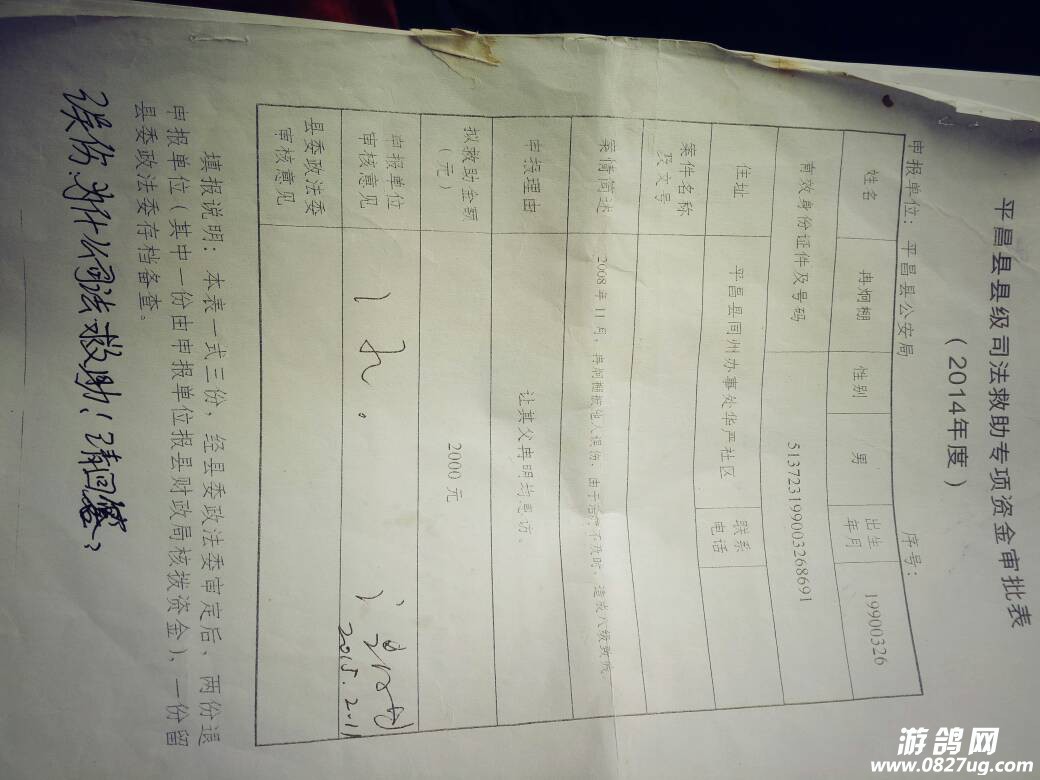 平昌县县级司法救助专项资金审批表
（2014年度）
申报单位：平昌县公安局 序号：
姓名 冉炯棚 性别 男 出生年月 19900326
有效身份证件及号码 513723199003268691
住址 平昌县同州办事处华严社区 联系电话
案件名称及文号
案情简述 2008年11月，冉炯棚被他人误伤，由于治疗不及时，造成八级致残。
申报理由 让其父冉明均息访。
拟救助金额（元） 2000元
申报单位审核意见
2015.2.11
县委政法委审核意见
填报说明：本表一式三份，经县委政法委审定后，两份退
申报单位（其中一份由申报单位报县财政局核拨资金），一份留
县委政法委存档备查。
误伤.为什么司法救助！请回答？
游鸽网
www.0827ug.com